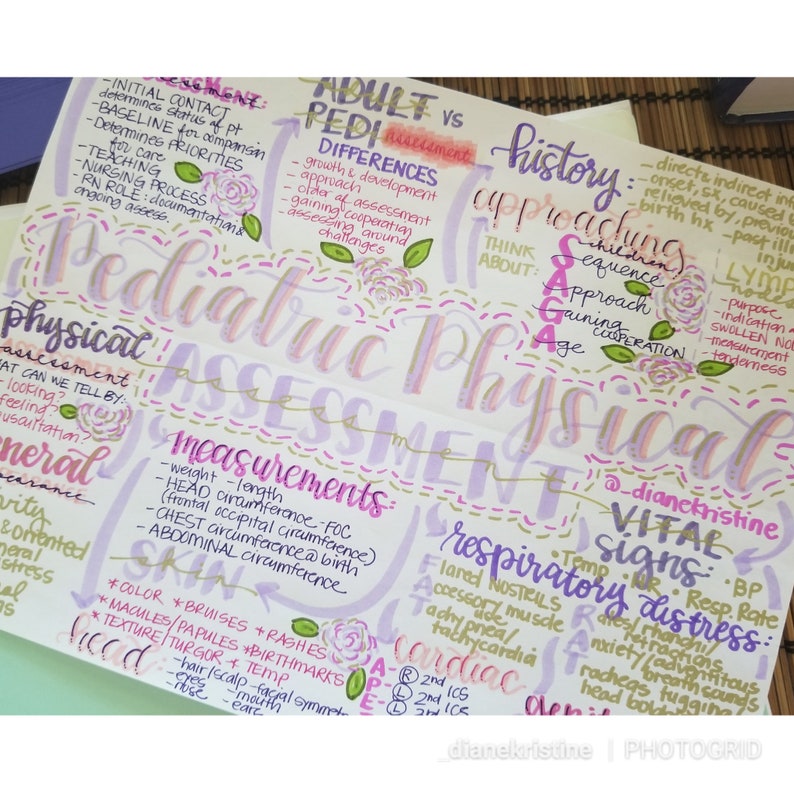 assessment:
- INITIAL CONTACT
determines status of pt
- BASELINE for comparison
for care
- Determines PRIORITIES
- TEACHING
- NURSING PROCESS
- RN ROLE: documentation &
ongoing assess.
ADULT vs
PEDI assessment
DIFFERENCES
- growth & development
- approach
- order of assessment
- gaining cooperation
- assessing around
challenges
history:
- direct & indirect
- onset, sx,
relieved by,
- birth hx - past
approaching
children
THINK
ABOUT:
Sequence
Approach
Gaining
COOPERATION
Age
- purpose
- indication
SWOLLEN
- measurement
- tenderness
Pediatric Physical
ASSESSMENT
assessment
@_dianekristine
physical
assessment
CAN WE TELL BY:
- looking?
feeling?
auscultation?
& oriented
measurements:
- weight - length
- HEAD circumference - FOC
(frontal occipital circumference)
- CHEST circumference @ birth
- ABDOMINAL circumference
SKIN
* COLOR * BRUISES * RASHES
* MACULES/PAPULES * BIRTHMARKS
* TEXTURE/TURGOR * TEMP
head:
- hair/scalp - facial symmetry
- eyes - mouth
- nose - ears
VITAL
signs:
• Temp • HR • BP
• Resp. Rate
respiratory distress:
Flared NOSTRILS
Accessory muscle
use
Tachypnea/
tachycardia
retractions
Anxiety/adventitious
breath sounds
tugging/
head bobbing
cardiac
R 2nd ICS
L 2nd ICS
L
_dianekristine | PHOTOGRID